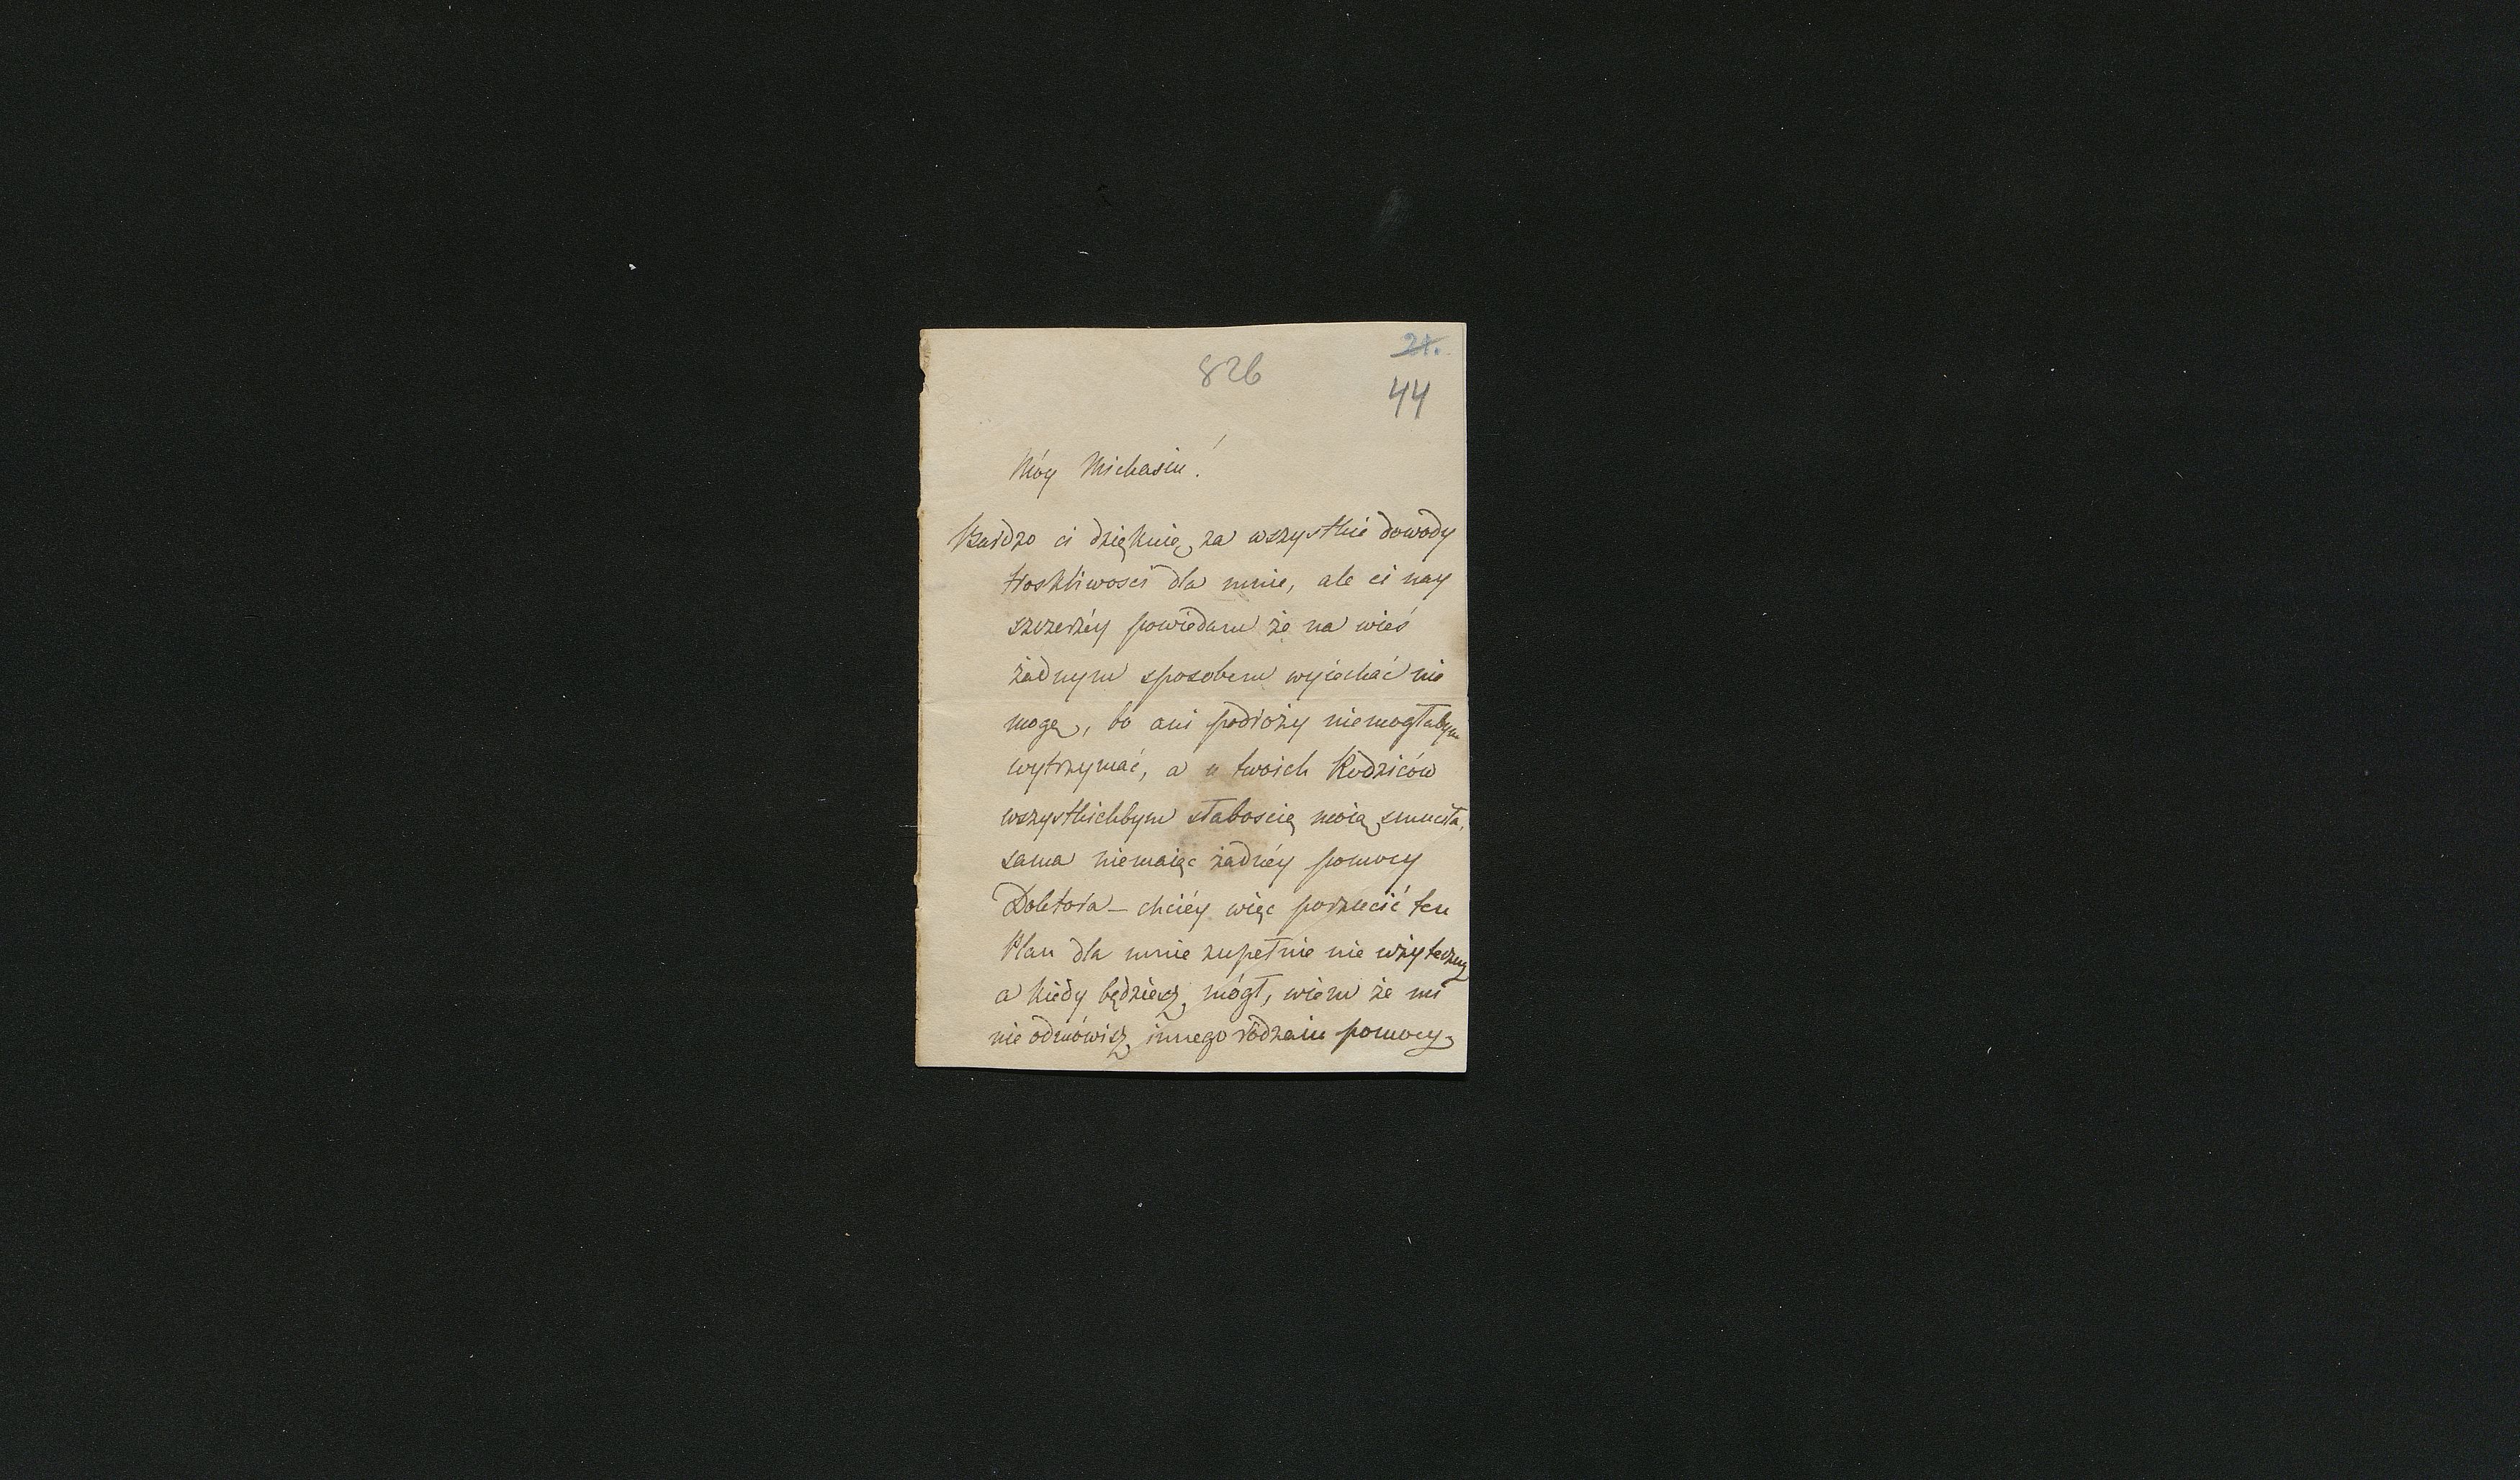 21.
826
44
Móy Michasiu!
Bardzo ci dziękuię za wszystkie dowody
troskliwosci dla mnie, ale ci nay
szczerzéy powiedam że na wieś
żadnym sposobem wyiechać nie
mogę, bo ani podroży niemogłabym
wytrzymać, a u twoich Rodziców
wszystkichbym słabością moią smuciła,
sama niemaiąc żadnéy pomocy
Doktora – chciéy więc porzucić ten
Plan dla mnie zupełnie nie użyteczny
a kiedy będziesz mógł, wiem że mi
nie odmówisz innego rodzaiu pomocy,